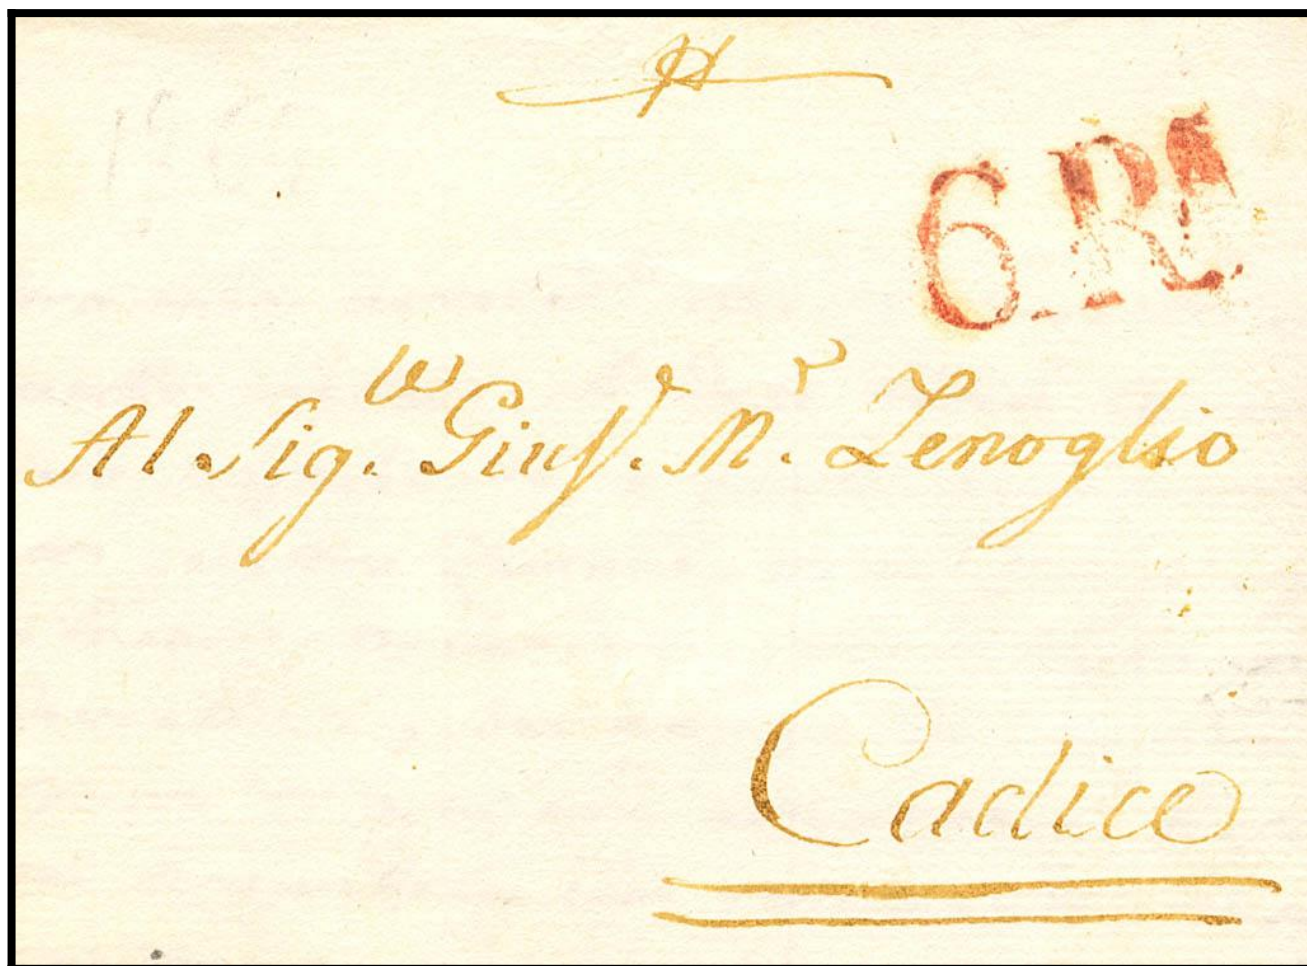 6.Rs.
Al Sig.re Gius.e M.a Zenoglio
Cadice